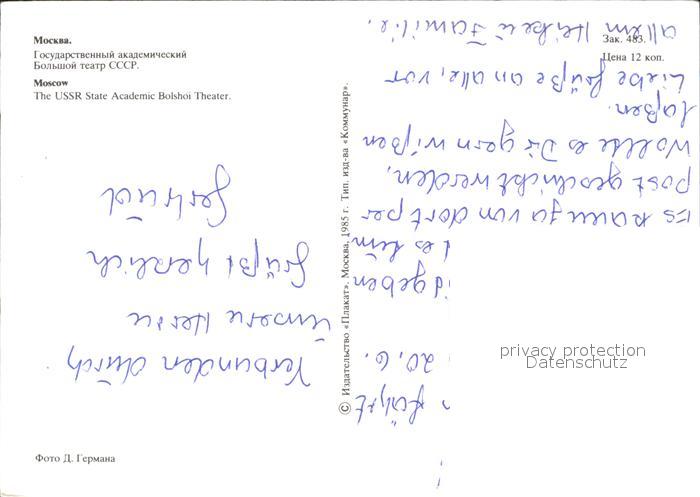 Москва.
Государственный академический
Большой театр СССР.
Moscow
The USSR State Academic Bolshoi Theater.
Зак. 483.
Цена 12 коп.
© Издательство «Плакат», Москва, 1985 г. Тип. изд-ва «Коммунар».
Фото Д. Германа
privacy protection
Datenschutz
führt
20. 6.
geben
Es kann ja von dort per
Post geschickt werden.
Wollte es Dir gern wißen
laßen.
Liebe Grüße an alle, vor
allem Heiber Familie.
Verbunden durch
Unsere
Grüßt herzlich
Gertrud